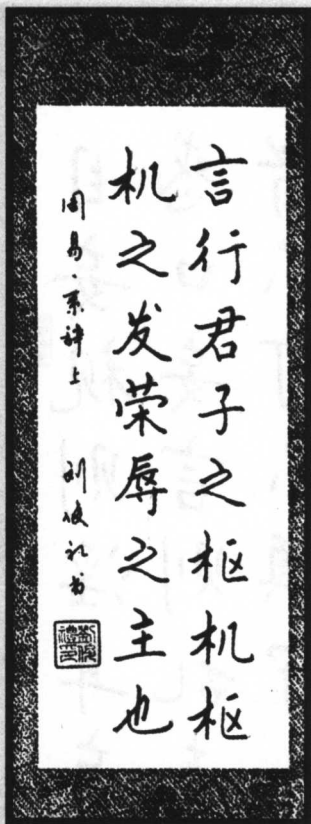 言行君子之枢机枢
机之发荣辱之主也
周易·系辞上
刘俊礼书